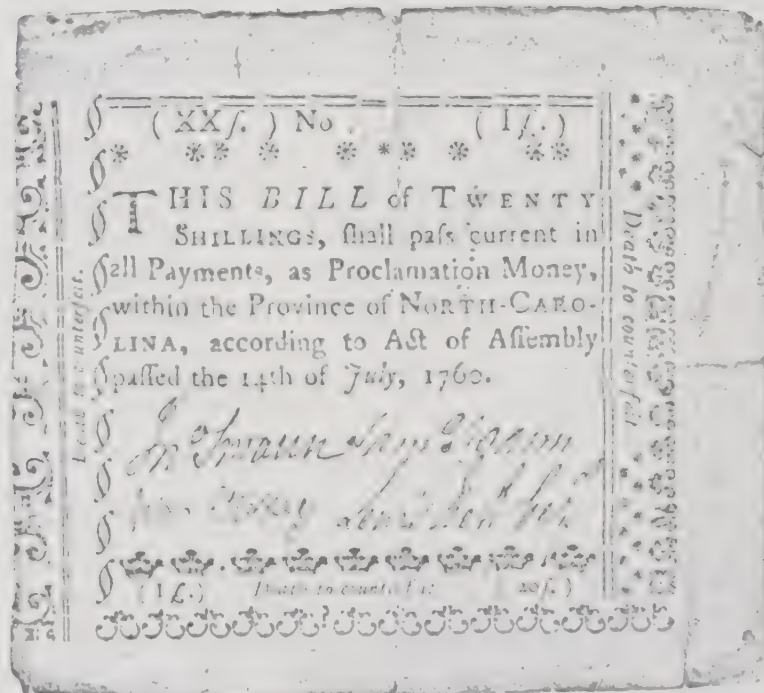 ( XXſ. ) No . ( I£. )
THIS BILL of TWENTY
SHILLINGS, ſhall paſs current in
all Payments, as Proclamation Money,
within the Province of NORTH-CARO-
LINA, according to Act of Aſſembly
paſſed the 14th of July, 1760.
Jn Swann Sam Swann
Lewis
( I £.) Death to counterfeit 20ſ. )
Death to counterfeit.
Death to counterfeit